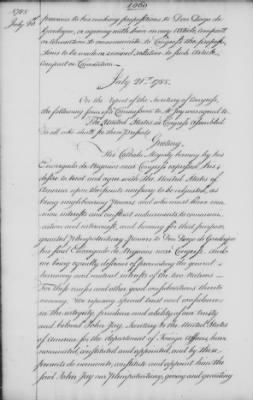 1060
1785
July 20
previous to his making propositions to Don Diego de
Gardoqui, or agreeing with him on any Article, compact
or Convention to communicate to Congress the propo-
sitions to be made or received relative to such Article
Compact or Convention.
July 21st 1785.
On the report of the Secretary of Congress,
the following form of a Commission to Mr Jay was agreed to.
The United States in Congress Assembled
To all who shall see these Presents
Greeting.
His Catholic Majesty having by his
Encargado de Negocios near Congress expressed his
desire to treat and agree with the United States of
America upon the points necessary to be adjusted, as
being neighbouring Powers and who must have com-
mon interests and constant inducements to communi-
cation and intercourse, and having for that purpose,
granted Plenipotentiary Powers to Don Diego de Gardoqui
his said Encargado de Negocios near Congress. And
we being equally desirous of promoting the general
harmony and mutual interests of the two nations —
For these causes and other good considerations thereto
moving. We reposing special trust and confidence
in the integrity, prudence and ability of our trusty
and beloved John Jay, Secretary to the United States
of America for the department of Foreign Affairs, have
nominated, constituted and appointed, and by these
presents do nominate, constitute and appoint him the
said John Jay our Plenipotentiary, giving and granting